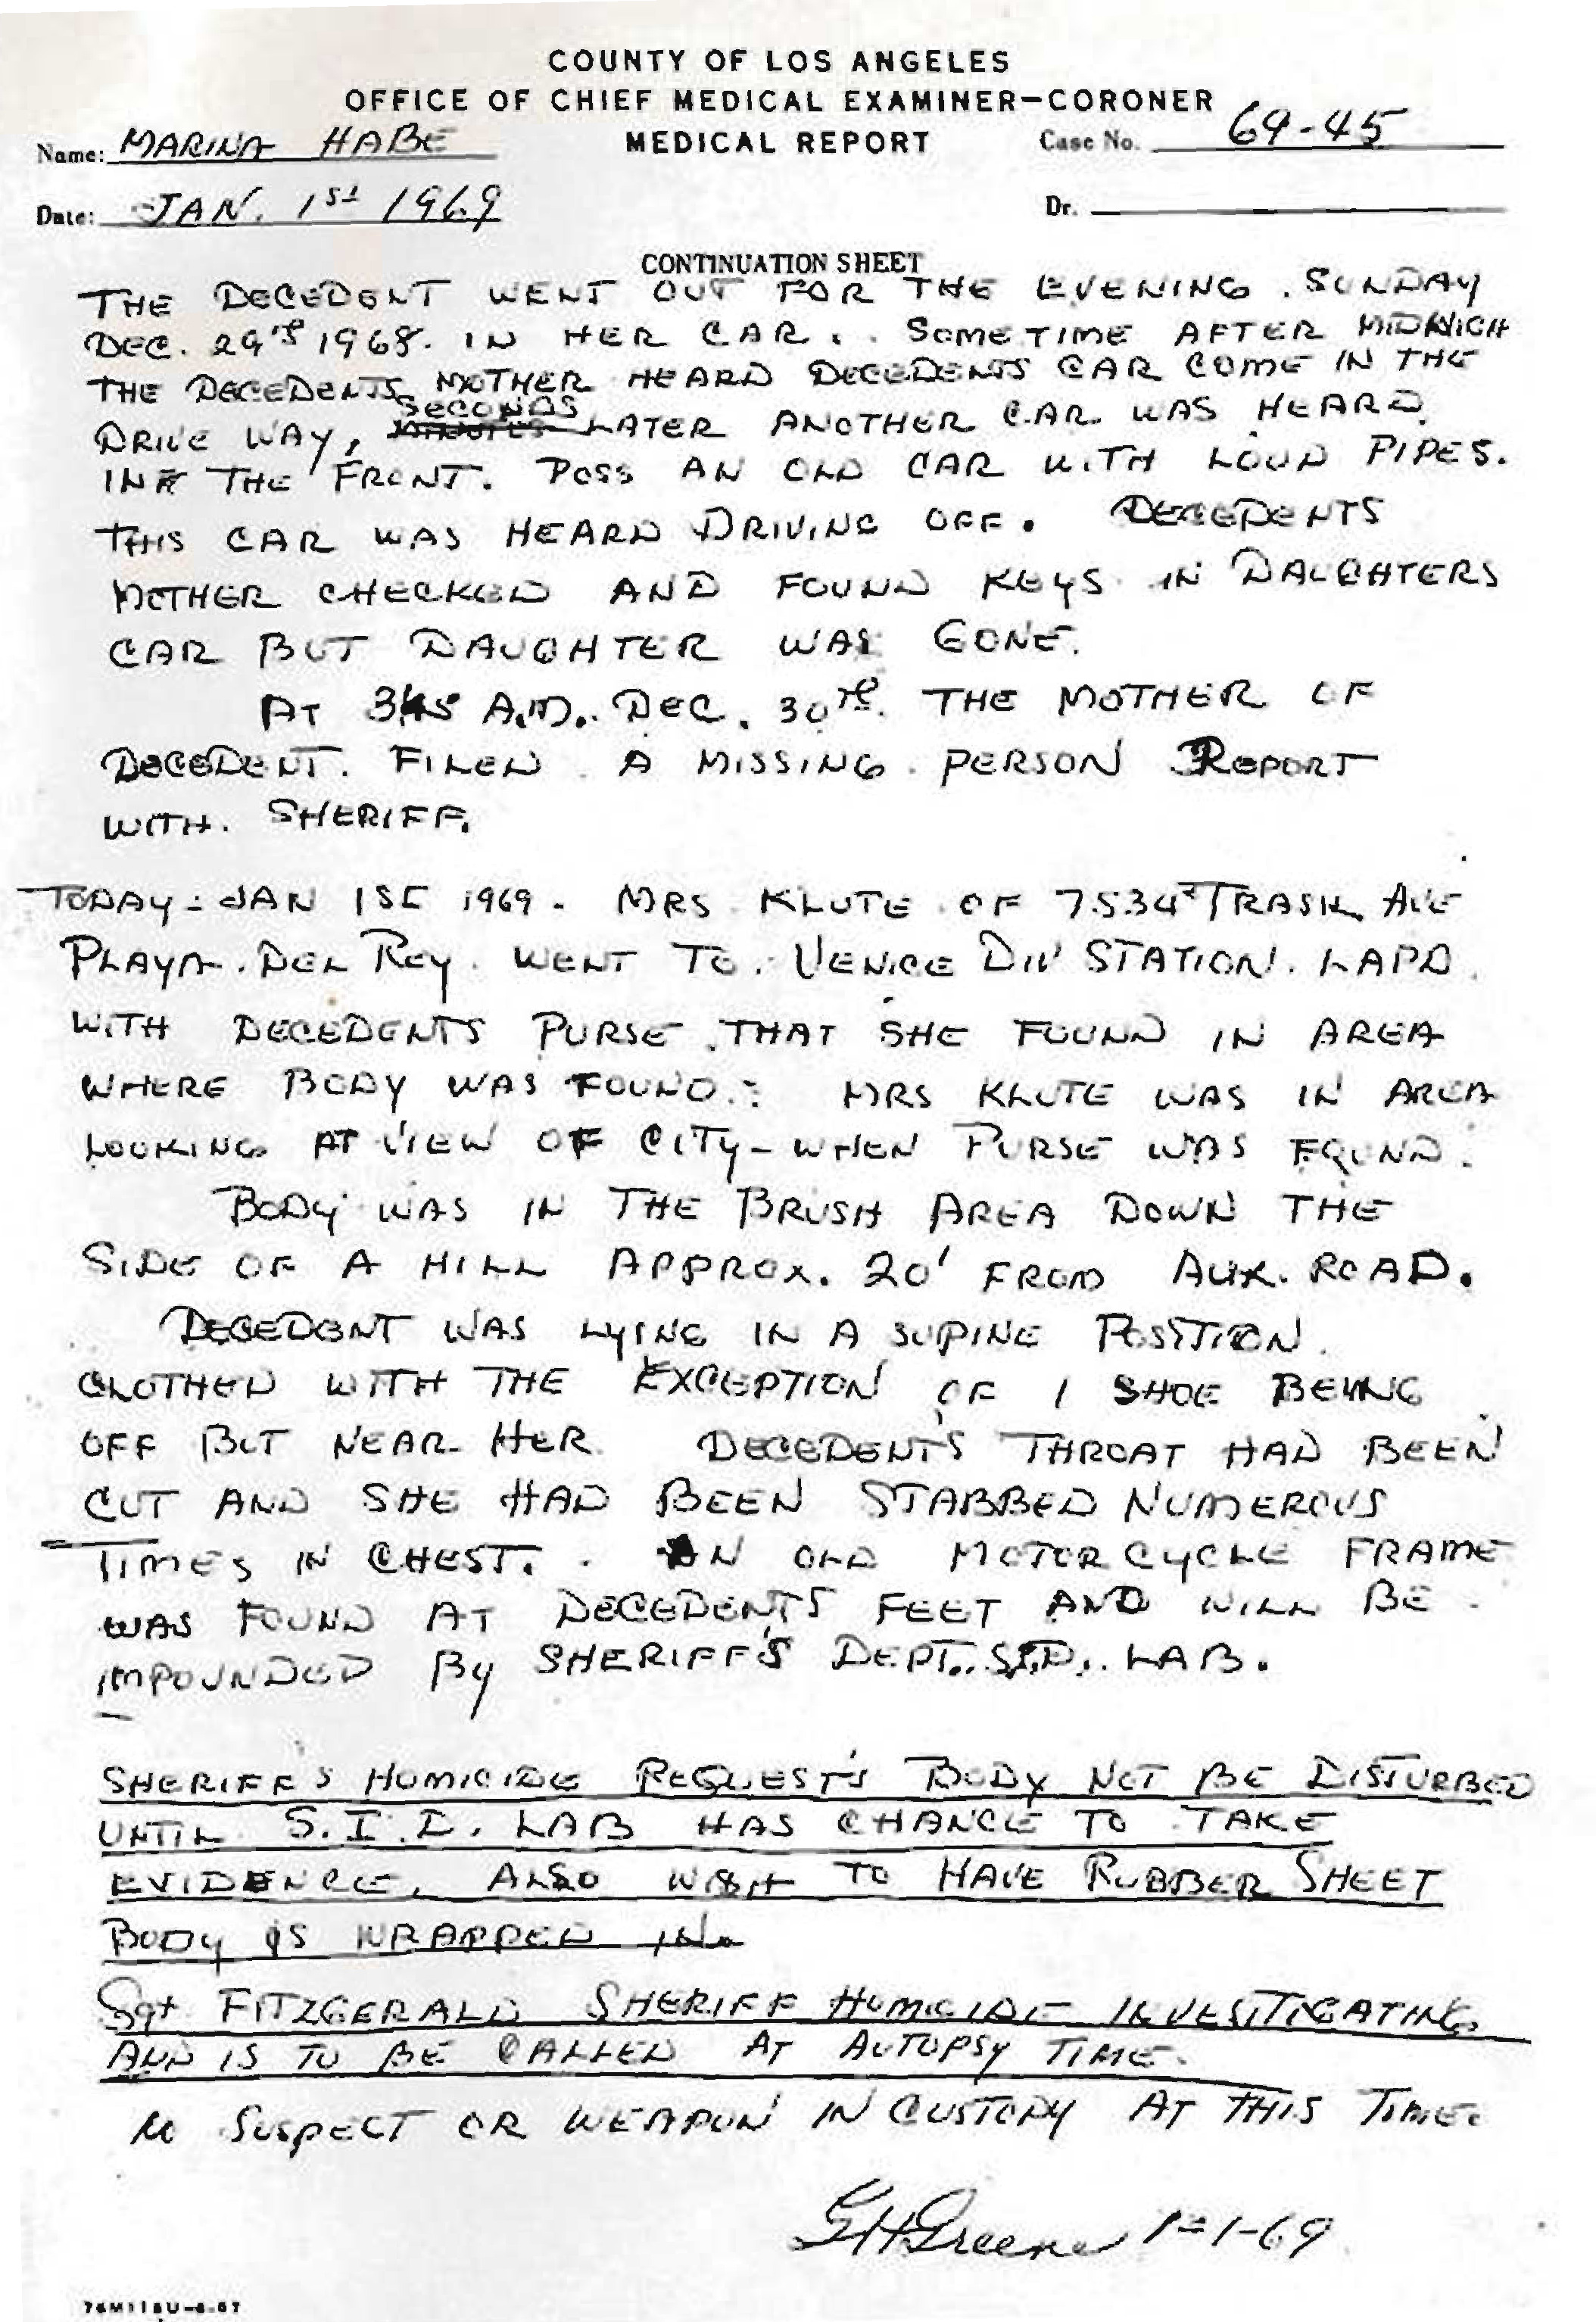 COUNTY OF LOS ANGELES
OFFICE OF CHIEF MEDICAL EXAMINER-CORONER
Name: MARINA HABE MEDICAL REPORT Case No. 69-45
Date: JAN. 1st 1969 Dr.
CONTINUATION SHEET
THE DECEDENT WENT OUT FOR THE EVENING. SUNDAY
DEC. 29th 1968. IN HER CAR.. SOMETIME AFTER MIDNIGH
THE DECEDENTS MOTHER HEARD DECEDENTS CAR COME IN THE
SECONDS
DRIVE WAY, LATER ANOTHER CAR WAS HEARD
IN THE FRONT. POSS AN OLD CAR WITH LOUD PIPES.
THIS CAR WAS HEARD DRIVING OFF. DECEDENTS
MOTHER CHECKED AND FOUND KEYS IN DAUGHTERS
CAR BUT DAUGHTER WAS GONE.
AT 345 A.M. DEC. 30th. THE MOTHER OF
DECEDENT. FILED A MISSING PERSON REPORT
WITH. SHERIFF.
TODAY: JAN 1ST 1969 - MRS KLUTE OF 7534 TRASK AVE
PLAYA DEL REY. WENT TO VENICE DIV STATION. LAPD.
WITH DECEDENTS PURSE THAT SHE FOUND IN AREA
WHERE BODY WAS FOUND. MRS KLUTE WAS IN AREA
LOOKING AT VIEW OF CITY - WHEN PURSE WAS FOUND.
BODY WAS IN THE BRUSH AREA DOWN THE
SIDE OF A HILL APPROX. 20' FROM AUX. ROAD.
DECEDENT WAS LYING IN A SUPINE POSITION.
CLOTHED WITH THE EXCEPTION OF 1 SHOE BEING
OFF BUT NEAR HER DECEDENTS THROAT HAD BEEN
CUT AND SHE HAD BEEN STABBED NUMEROUS
TIMES IN CHEST. AN OLD MOTORCYCLE FRAME
WAS FOUND AT DECEDENTS FEET AND WILL BE
IMPOUNDED BY SHERIFF'S DEPT. S.I.D. LAB.
SHERIFF'S HOMICIDE REQUESTS BODY NOT BE DISTURBED
UNTIL S.I.D. LAB HAS CHANCE TO TAKE
EVIDENCE. ALSO WISH TO HAVE RUBBER SHEET
BODY IS WRAPPED IN.
Sgt FITZGERALD SHERIFF HOMICIDE INVESTIGATING
AND IS TO BE CALLED AT AUTOPSY TIME.
NO SUSPECT OR WEAPON IN CUSTODY AT THIS TIME.
GHGreene 1-1-69